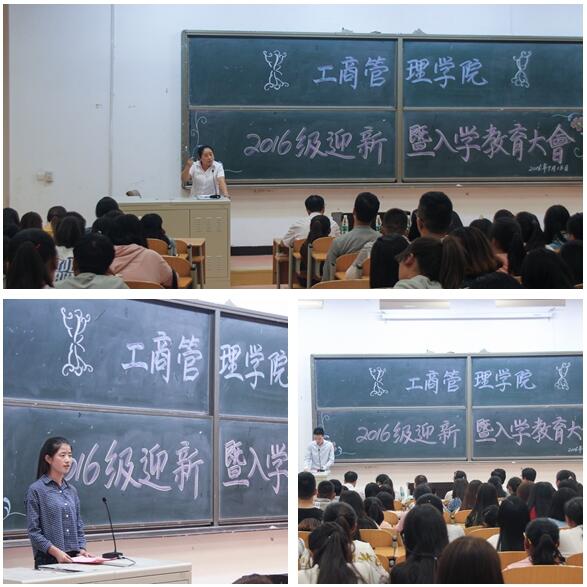 工商管理学院
2016级迎新暨入学教育大會
工商管理学院
2016级迎新暨入学
工商管理学院
2016级迎新暨入学教育大